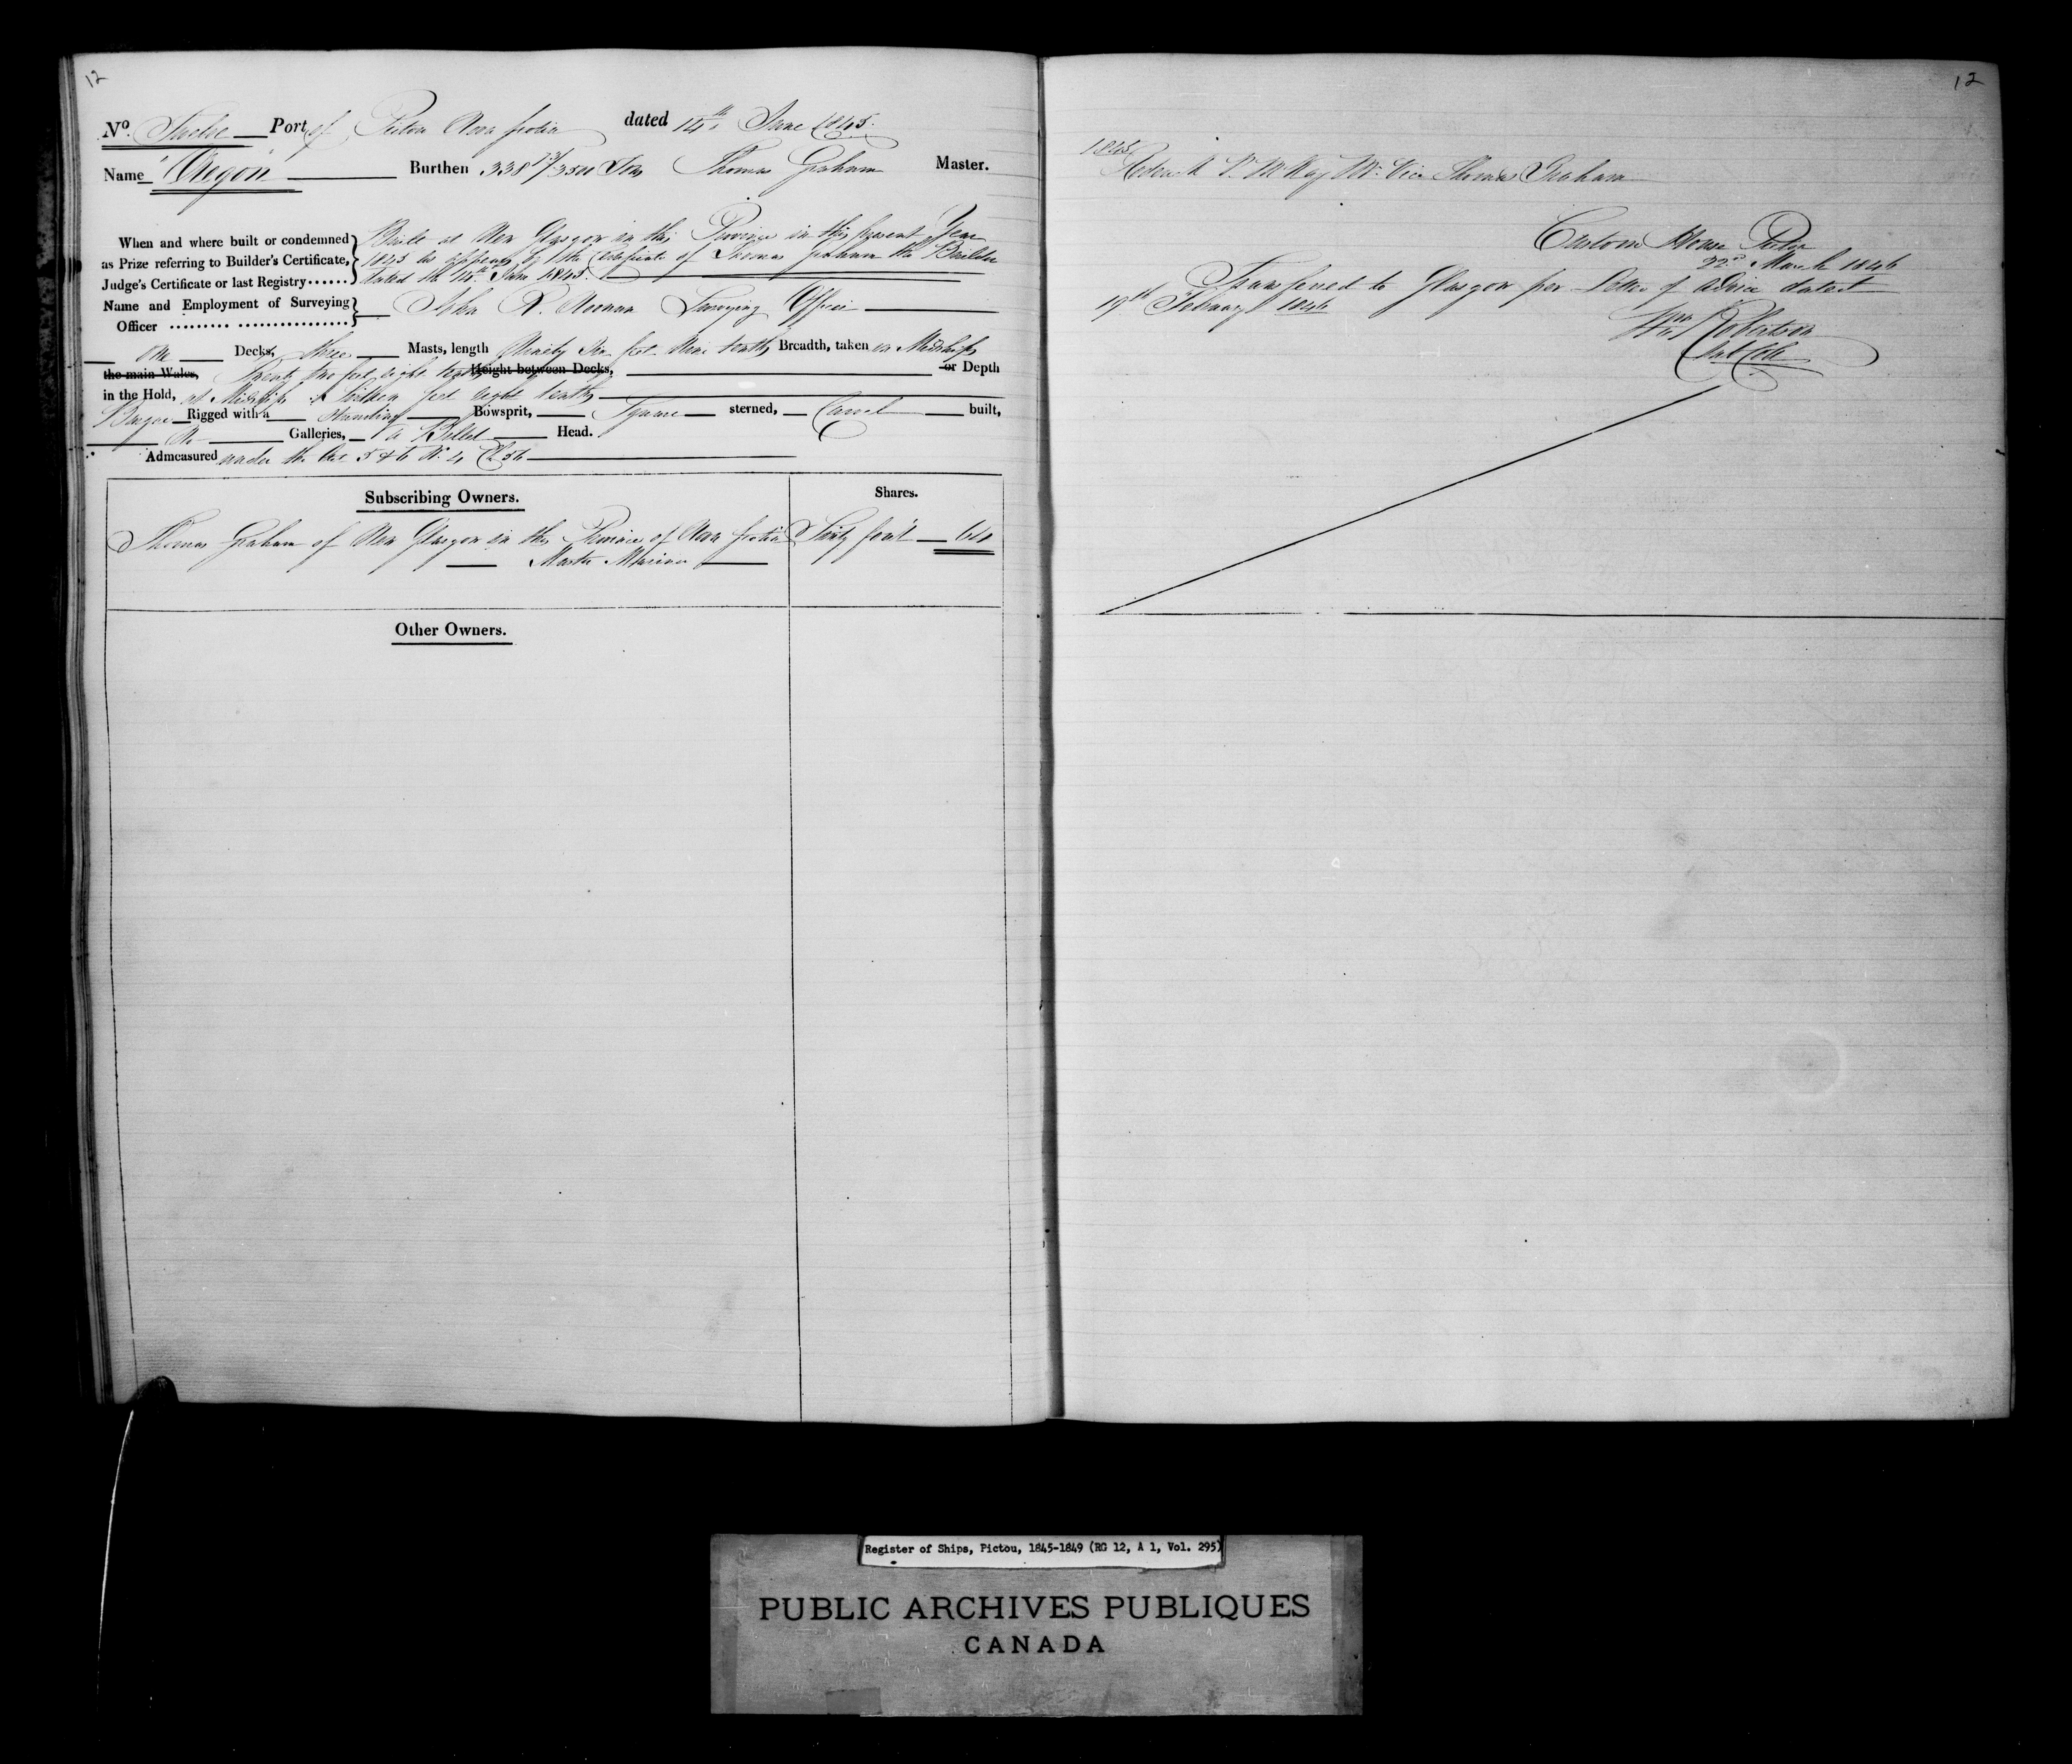 12
No. Twelve Port of Pictou Nova Scotia dated 14th June 1845.
Name "Oregon" Burthen 338 /3500 Tons Thomas Graham Master.
When and where built or condemned as Prize referring to Builder's Certificate, Judge's Certificate or last Registry......
Built at New Glasgow in this Province in this present Year
1845 as appears by the Certificate of Thomas Graham the Builder
dated the 14th June 1845.
Name and Employment of Surveying Officer ......... ................ John R. Noonan Surveying Officer
One Decks, three Masts, length Ninety feet nine tenths Breadth, taken in Midships
the main Wales, Twenty two feet eight tenths Height between Decks, or Depth
in the Hold, at Midships feet eight tenths
Barque Rigged with a Standing Bowsprit, Square sterned, Carvel built,
No Galleries, a Billet Head.
Admeasured under the Act 5 & 6 W. 4 Ch 56
Subscribing Owners. Shares.
Thomas Graham of New Glasgow in the Province of Nova Scotia Sixty four 64
Master Mariner
Other Owners.
12
1845
R. McKay Mr. Vice Thomas Graham
Custom House Pictou
22d March 1846
Transferred to Glasgow per Letter of Advice dated
19th February 1846
Wm Robertson
Register of Ships, Pictou, 1845-1849 (RG 12, A 1, Vol. 295)
PUBLIC ARCHIVES PUBLIQUES
CANADA